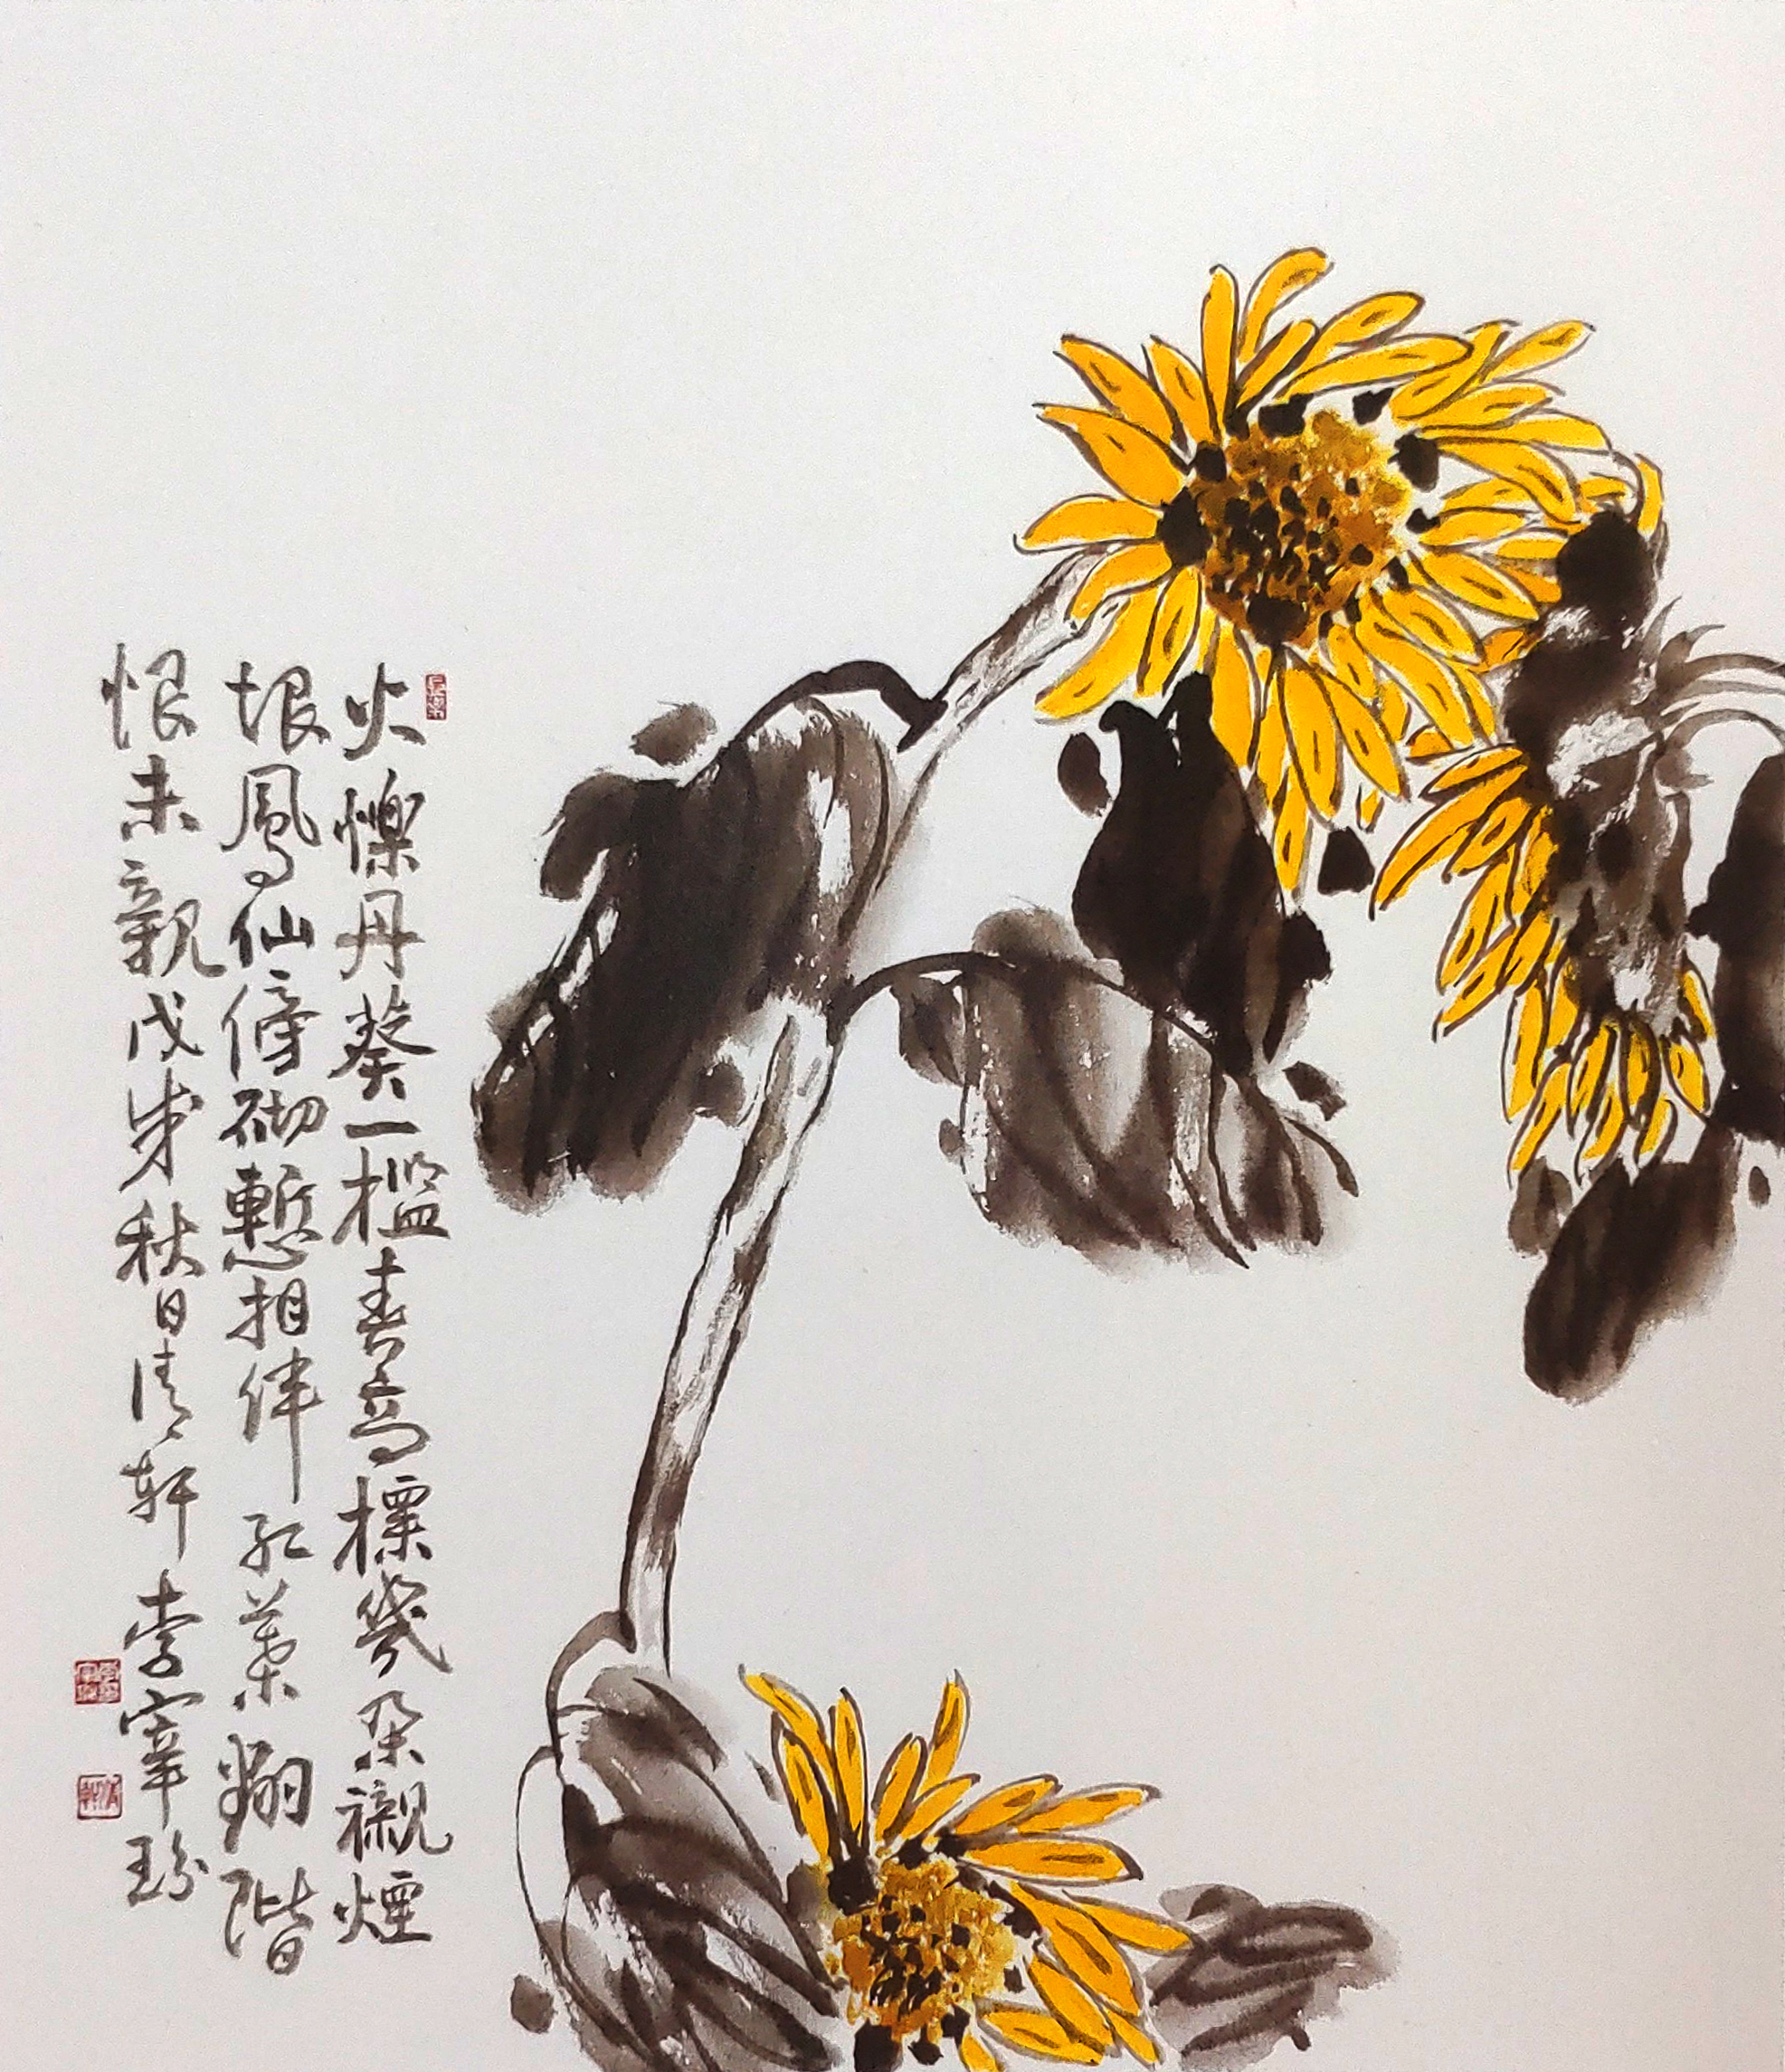 火爍丹葵一檻春高標幾朵襯煙
垠鳳仙傍砌慙相伴紅藥翻階
恨未親戊戌秋日清軒李宰玢